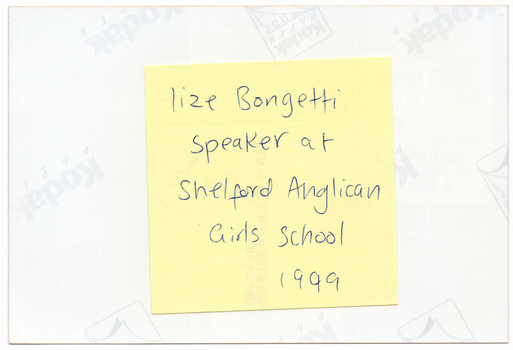 lize Bongetti
Speaker at
Shelford Anglican
Girls School
1999
Kodak
Kodak
Kodak
Kodak
Kodak